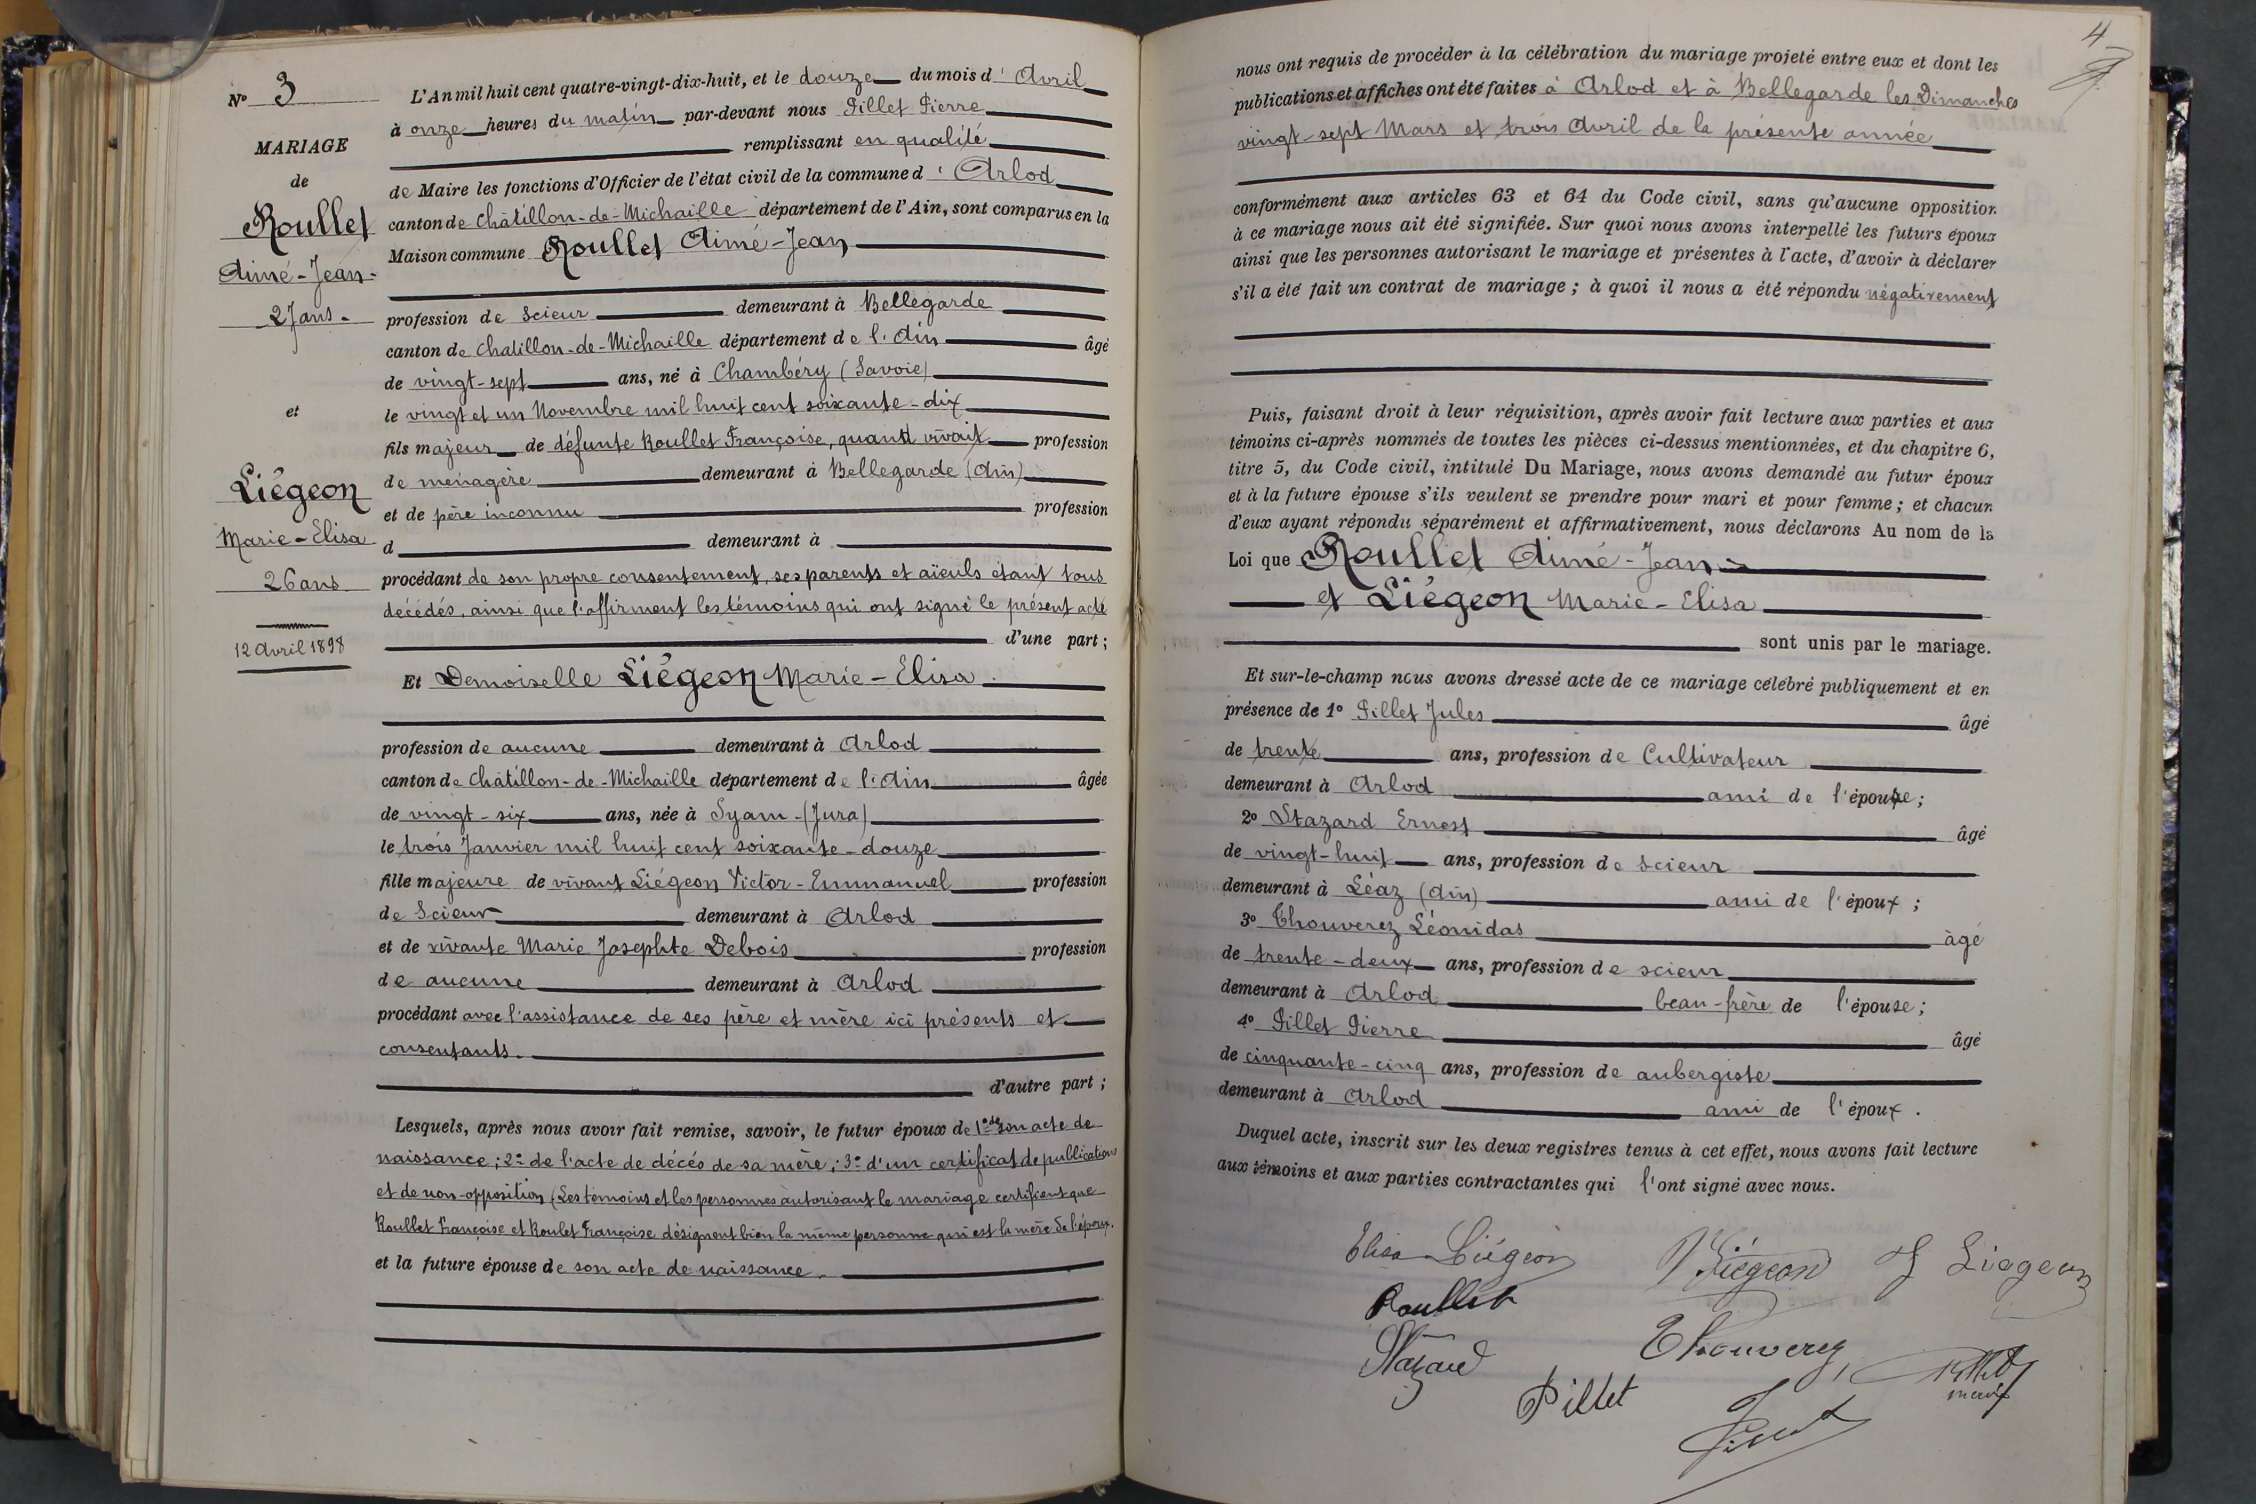 N° 3
MARIAGE
de
Roullet
Aimé-Jean-
27 ans-
et
Liégeon
Marie-Elisa
26 ans
12 Avril 1898
L'An mil huit cent quatre-vingt-dix-huit, et le douze du mois d'Avril
à onze heures du matin par-devant nous Pillet Pierre
remplissant en qualité
de Maire les fonctions d'Officier de l'état civil de la commune d'Arlod
canton de Châtillon-de-Michaille département de l'Ain, sont comparus en la
Maison commune Roullet Aimé-Jean
profession de Scieur demeurant à Bellegarde
canton de Chatillon-de-Michaille département de l'Ain âgé
de vingt-sept ans, né à Chambéry (Savoie)
le vingt et un Novembre mil huit cent soixante-dix
fils majeur de défunte Roullet Françoise, quand vivait profession
de ménagère demeurant à Bellegarde (Ain)
et de père inconnu profession
d demeurant à
procédant de son propre consentement, ses parents et aïeuls étant tous
décédés, ainsi que l'affirment les témoins qui ont signé le présent acte
d'une part;
Et Demoiselle Liégeon Marie-Elisa.
profession de aucune demeurant à Arlod
canton de Châtillon-de-Michaille département de l'Ain âgée
de vingt-six ans, née à Syam-(Jura)
le trois Janvier mil huit cent soixante-douze
fille majeure de vivant Liégeon Victor-Emmanuel profession
de Scieur demeurant à Arlod
et de vivante Marie Josephte Debois profession
de aucune demeurant à Arlod
procédant avec l'assistance de ses père et mère ici présents et
consentants.
d'autre part;
Lesquels, après nous avoir fait remise, savoir, le futur époux de 1° de son acte de
naissance; 2° de l'acte de décés de sa mère; 3° d'un certificat de publications
et de non-opposition (Les témoins et les personnes autorisant le mariage certifient que
Roullet Françoise et Roulet Françoise désignent bien la même personne qui est la mère de l'époux.
et la future épouse de son acte de naissance.
4
nous ont requis de procéder à la célébration du mariage projeté entre eux et dont les
publications et affiches ont été faites à Arlod et à Bellegarde les Dimanches
vingt-sept Mars et trois Avril de la présente année
conformément aux articles 63 et 64 du Code civil, sans qu'aucune opposition
à ce mariage nous ait été signifiée. Sur quoi nous avons interpellé les futurs époux
ainsi que les personnes autorisant le mariage et présentes à l'acte, d'avoir à déclarer
s'il a été fait un contrat de mariage; à quoi il nous a été répondu négativement
Puis, faisant droit à leur réquisition, après avoir fait lecture aux parties et aux
témoins ci-après nommés de toutes les pièces ci-dessus mentionnées, et du chapitre 6,
titre 5, du Code civil, intitulé Du Mariage, nous avons demandé au futur époux
et à la future épouse s'ils veulent se prendre pour mari et pour femme; et chacun
d'eux ayant répondu séparément et affirmativement, nous déclarons Au nom de la
Loi que Roullet Aimé-Jean
et Liégeon Marie-Elisa
sont unis par le mariage.
Et sur-le-champ nous avons dressé acte de ce mariage célébré publiquement et en
présence de 1° Pillet Jules âgé
de trente ans, profession de Cultivateur
demeurant à Arlod ami de l'épouse;
2° Stazard Ernest âgé
de vingt-huit ans, profession de scieur
demeurant à Léaz (Ain) ami de l'époux;
3° Thouverez Léonidas âgé
de trente-deux ans, profession de scieur
demeurant à Arlod beau-frère de l'épouse;
4° Pillet Pierre âgé
de cinquante-cinq ans, profession de aubergiste
demeurant à Arlod ami de l'époux.
Duquel acte, inscrit sur les deux registres tenus à cet effet, nous avons fait lecture
aux témoins et aux parties contractantes qui l'ont signé avec nous.
Elisa Liégeon V Liégeon Liegeon
Roullet
Stazard Thouverez Pillet
maire
Pillet
Pillet